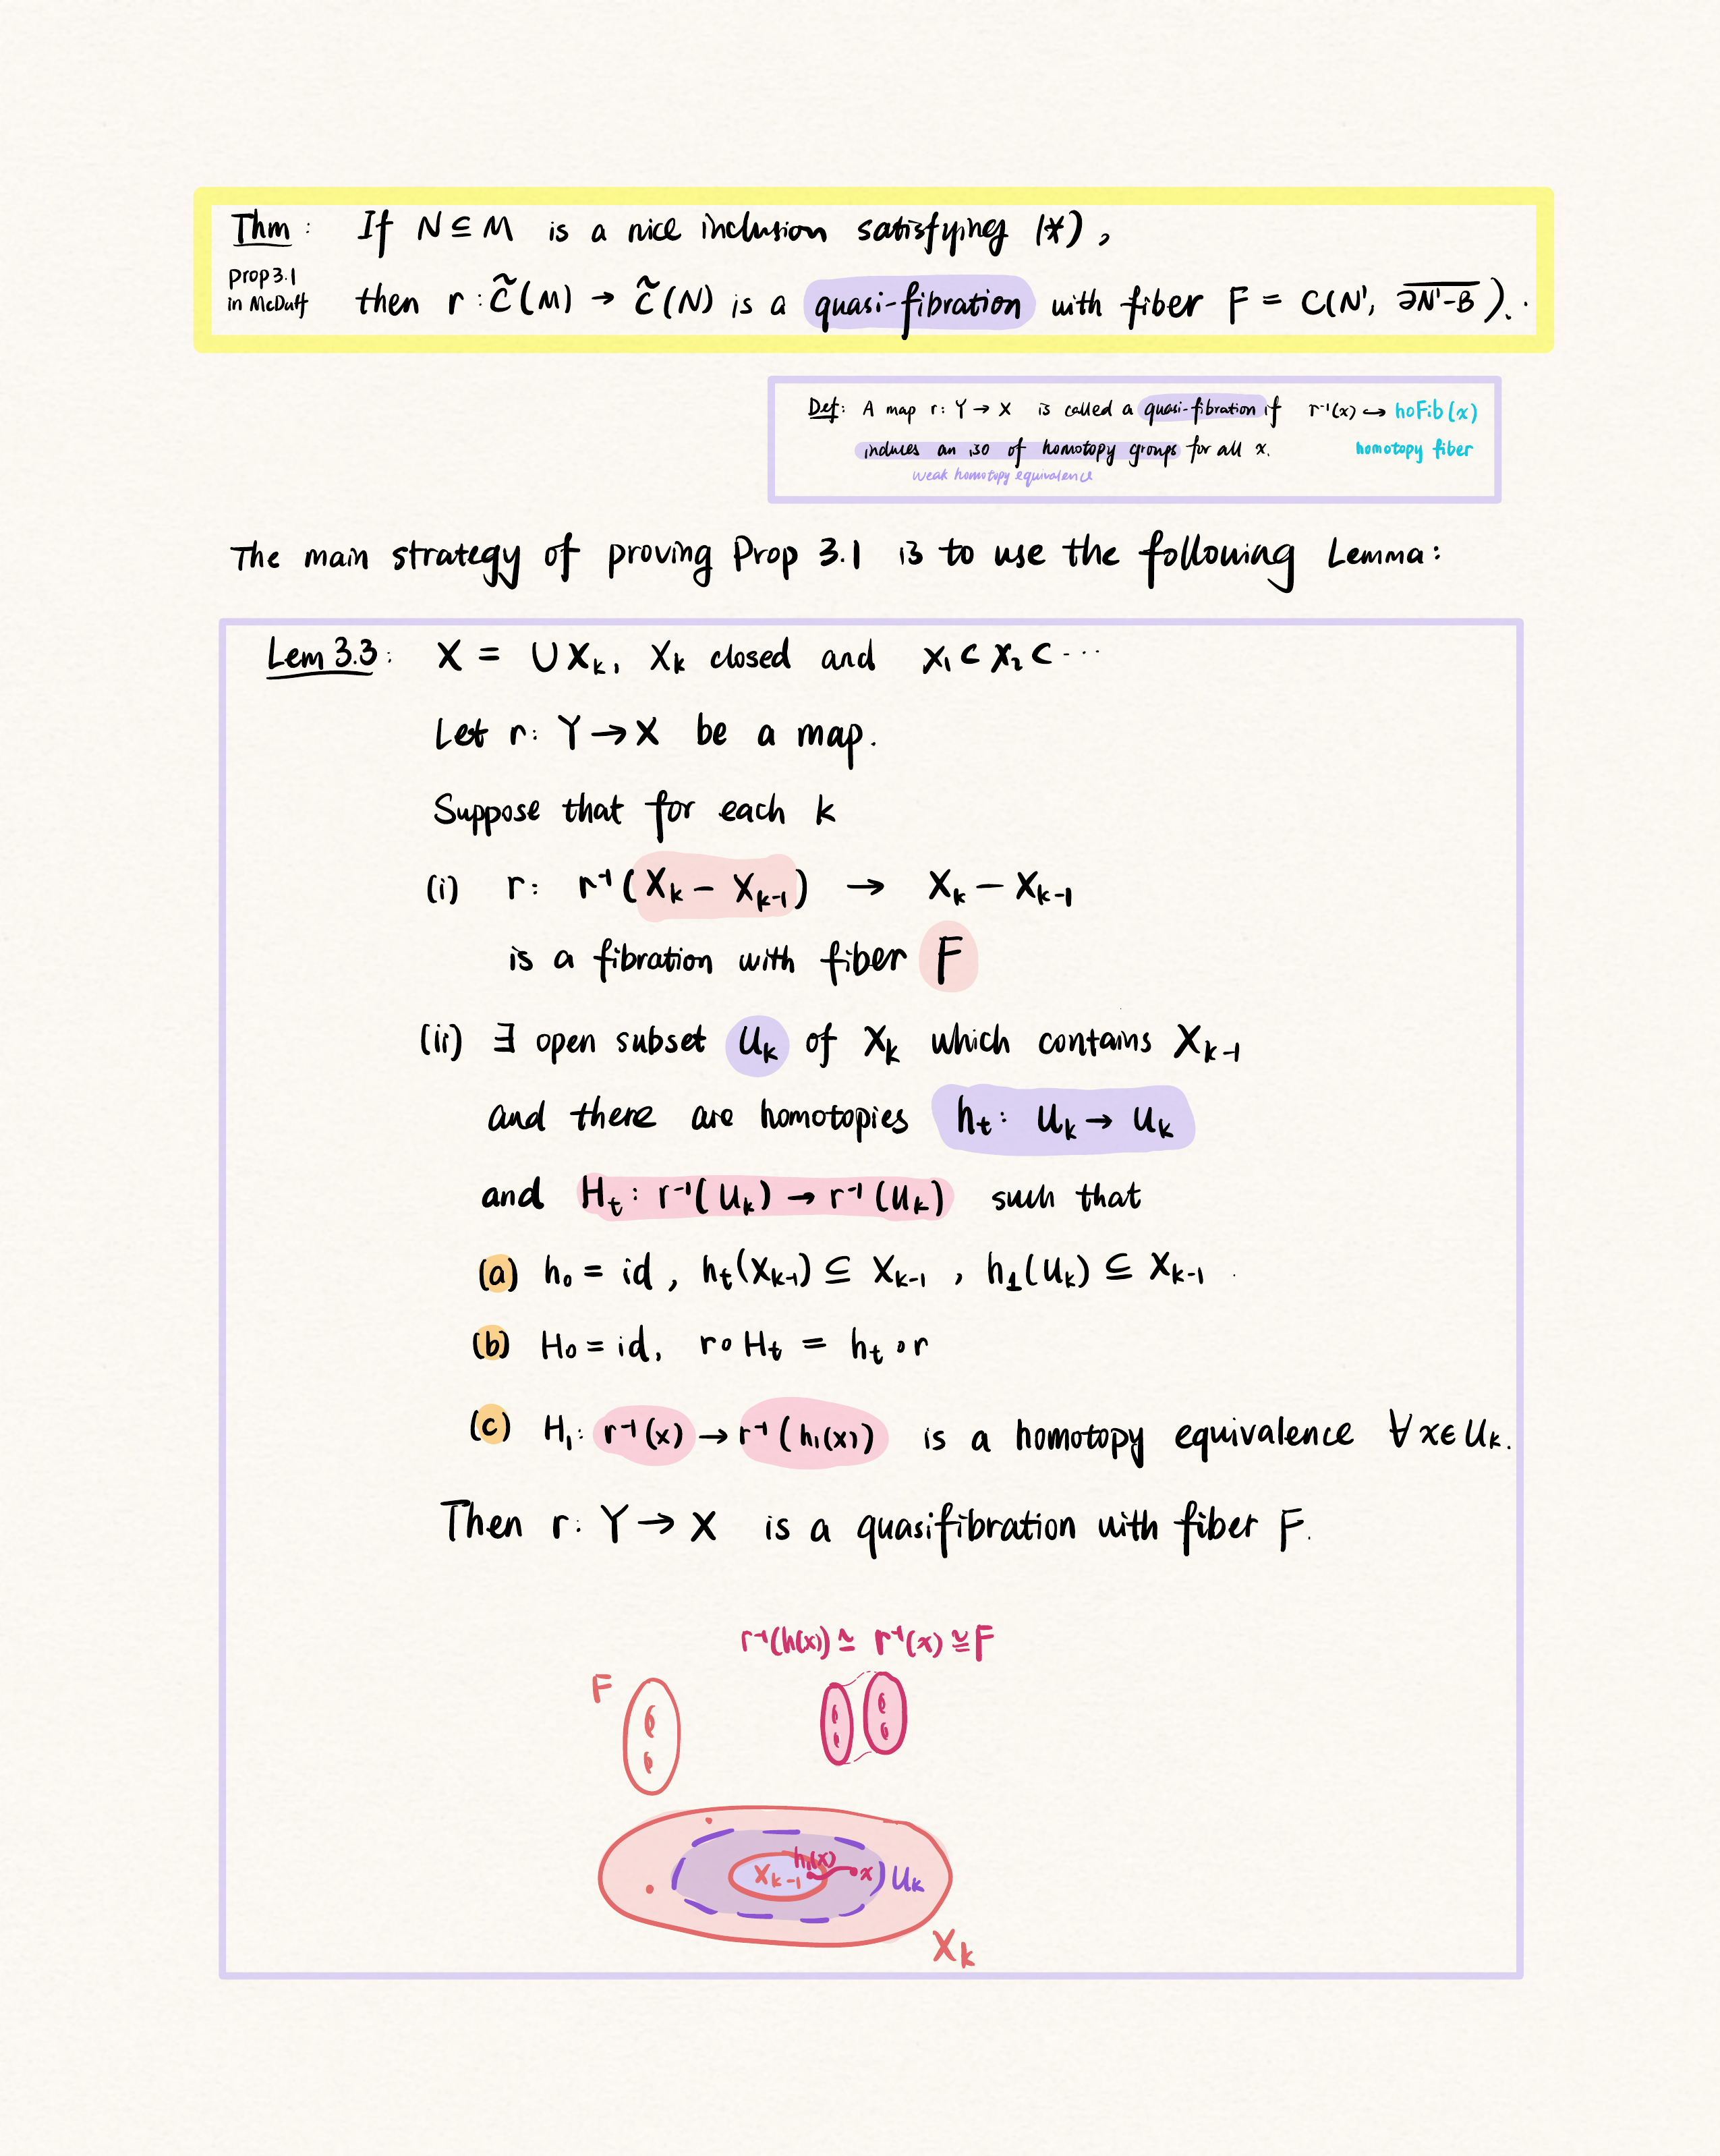 Thm: If N ⊆ M is a nice inclusion satisfying (*),
prop 3.1
in McDuff
then r: C̃(M) → C̃(N) is a quasi-fibration with fiber F = C(N', \overline{∂N'-B}).
Def: A map r: Y → X is called a quasi-fibration if r⁻¹(x) ↪ hoFib(x)
induces an iso of homotopy groups for all x. homotopy fiber
weak homotopy equivalence
The main strategy of proving Prop 3.1 is to use the following Lemma:
Lem 3.3: X = ∪ X_k, X_k closed and X_1 ⊂ X_2 ⊂ ···
Let r: Y → X be a map.
Suppose that for each k
(i) r: r⁻¹(X_k − X_{k-1}) → X_k − X_{k-1}
is a fibration with fiber F
(ii) ∃ open subset U_k of X_k which contains X_{k-1}
and there are homotopies h_t: U_k → U_k
and H_t: r⁻¹(U_k) → r⁻¹(U_k) such that
(a) h_0 = id, h_t(X_{k-1}) ⊆ X_{k-1}, h_1(U_k) ⊆ X_{k-1}.
(b) H_0 = id, r∘H_t = h_t∘r
(c) H_1: r⁻¹(x) → r⁻¹(h_1(x)) is a homotopy equivalence ∀ x ∈ U_k.
Then r: Y → X is a quasifibration with fiber F.
r⁻¹(h(x)) ≃ r⁻¹(x) ≅ F
F
h_1(x)
X_{k-1} x U_k
X_k